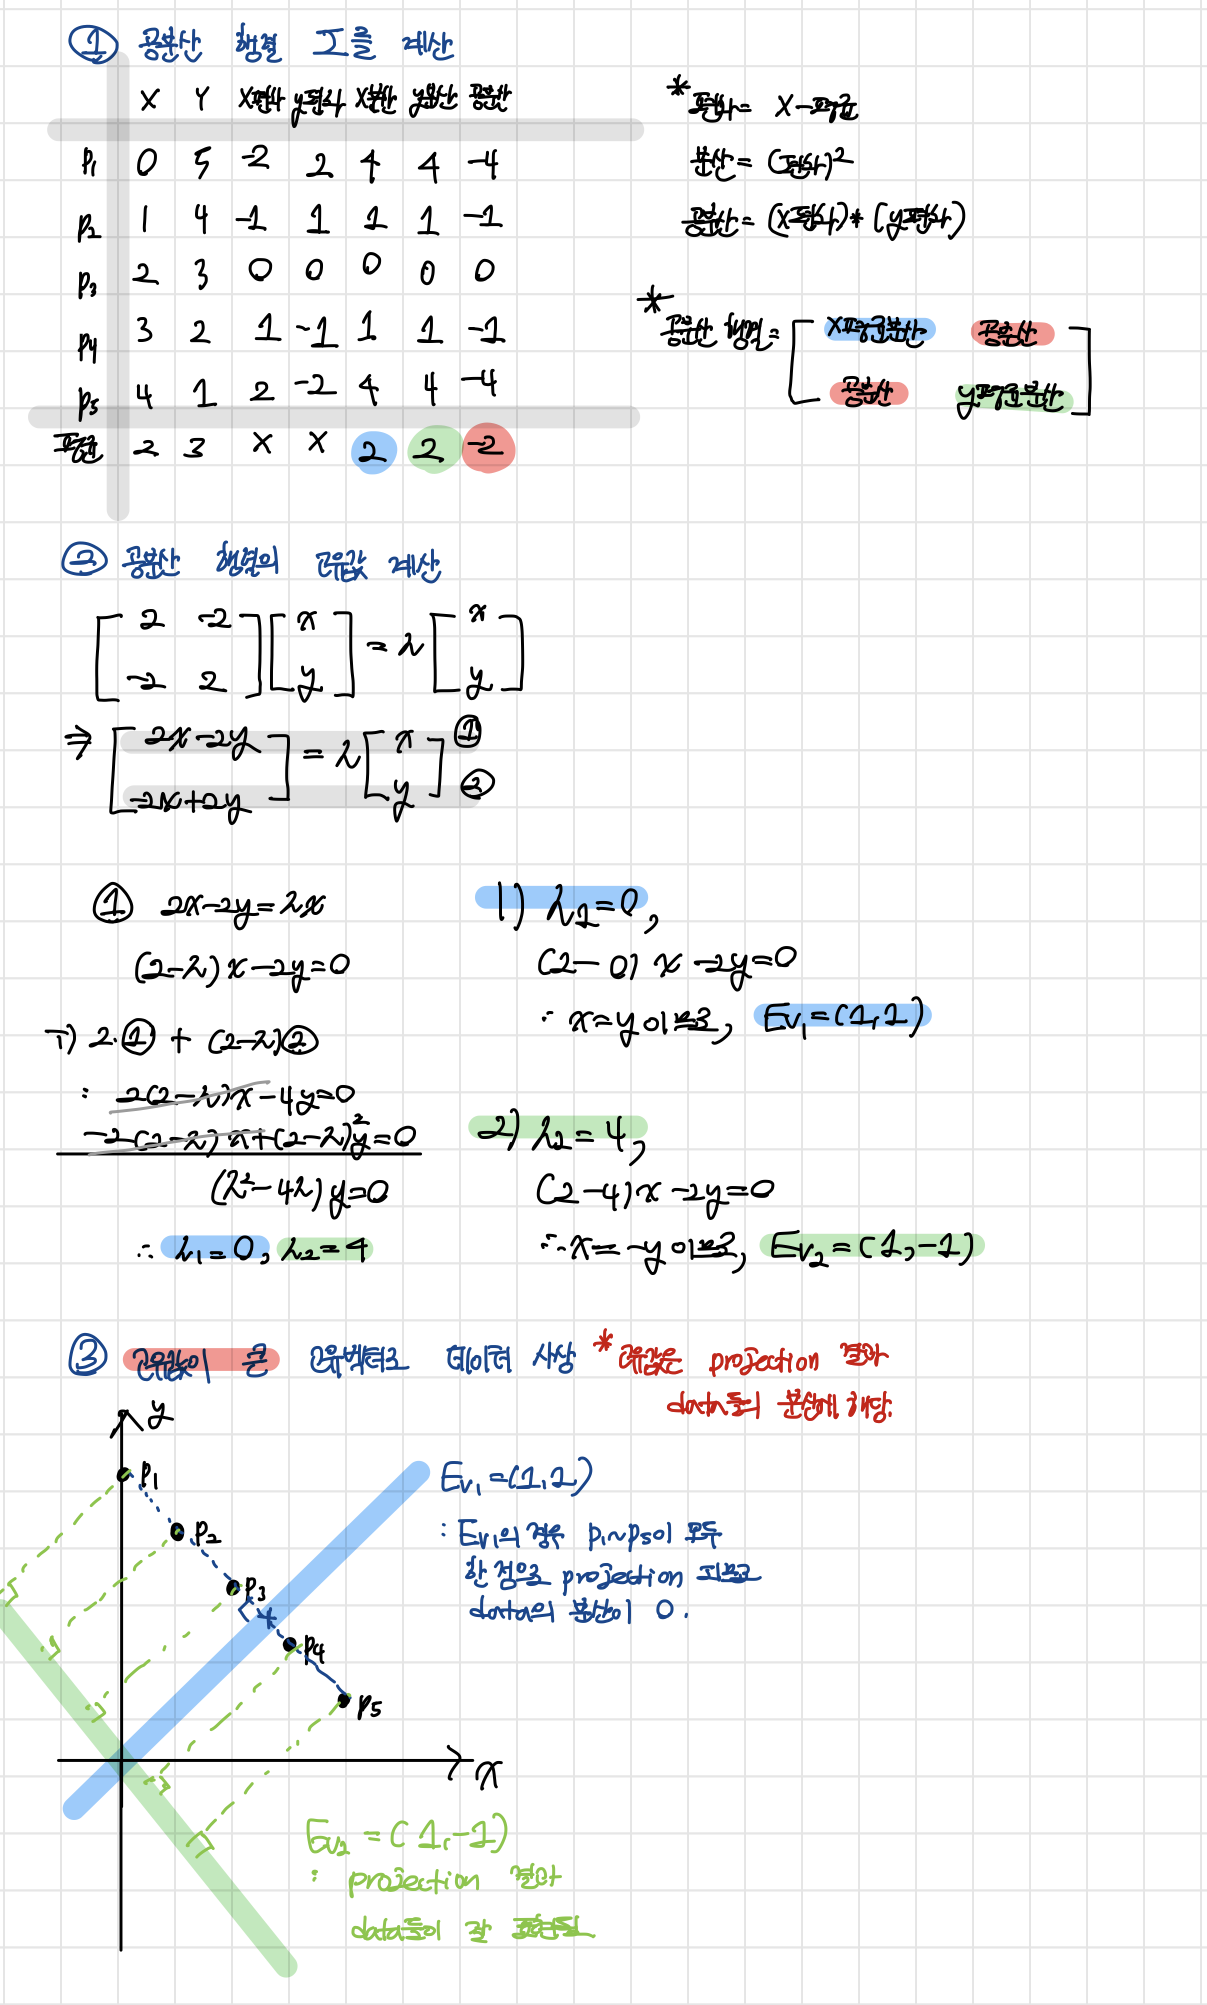 ① 공분산 행렬 Σ를 계산
X Y X편차 y편차 X분산 y분산 공분산
P1 0 5 -2 2 4 4 -4
P2 1 4 -1 1 1 1 -1
P3 2 3 0 0 0 0 0
P4 3 2 1 -1 1 1 -1
P5 4 1 2 -2 4 4 -4
평균 2 3 X X 2 2 -2
* 편차= X-평균
분산= (편차)²
공분산= (X편차)*(y편차)
* 공분산 행렬= [ X평균분산 공분산
공분산 y평균분산 ]
② 공분산 행렬의 고유값 계산
[ 2 -2 ] [ x ] = λ [ x ]
[ -2 2 ] [ y ] [ y ]
⇒ [ 2x-2y ] = λ [ x ] ①
[ -2x+2y ] [ y ] ②
① 2x-2y=λx
(2-λ)x-2y=0
i) 2·① + (2-λ)②
: 2(2-λ)x-4y=0
-2(2-λ)x+(2-λ)²y=0
(λ²-4λ)y=0
∴ λ1=0, λ2=4
1) λ1=0,
(2-0)x-2y=0
∴ x=y이므로, Ev1=(1,1)
2) λ2=4,
(2-4)x-2y=0
∴ x=-y이므로, Ev2=(1,-1)
③ 고유값이 큰 고유벡터로 데이터 사상
* 고유값은 projection 결과
data들의 분산에 해당.
y
P1
P2
P3
P4
P5
x
Ev1=(1,1)
: Ev1의 경우 P1~P5이 모두
한 점으로 projection 되므로
data의 분산이 0.
Ev2 = (1,-1)
: projection 결과
data들이 잘 표현됨